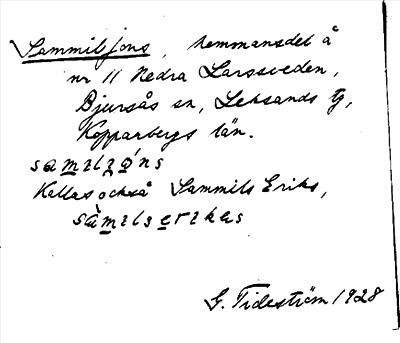 Sammilsjons, hemmansdel å
nr 11 Nedra Larssveden,
Bjursås sn, Leksands tg,
Kopparbergs län.
Kallas också Sammils Eriks,
G. Tideström 1928